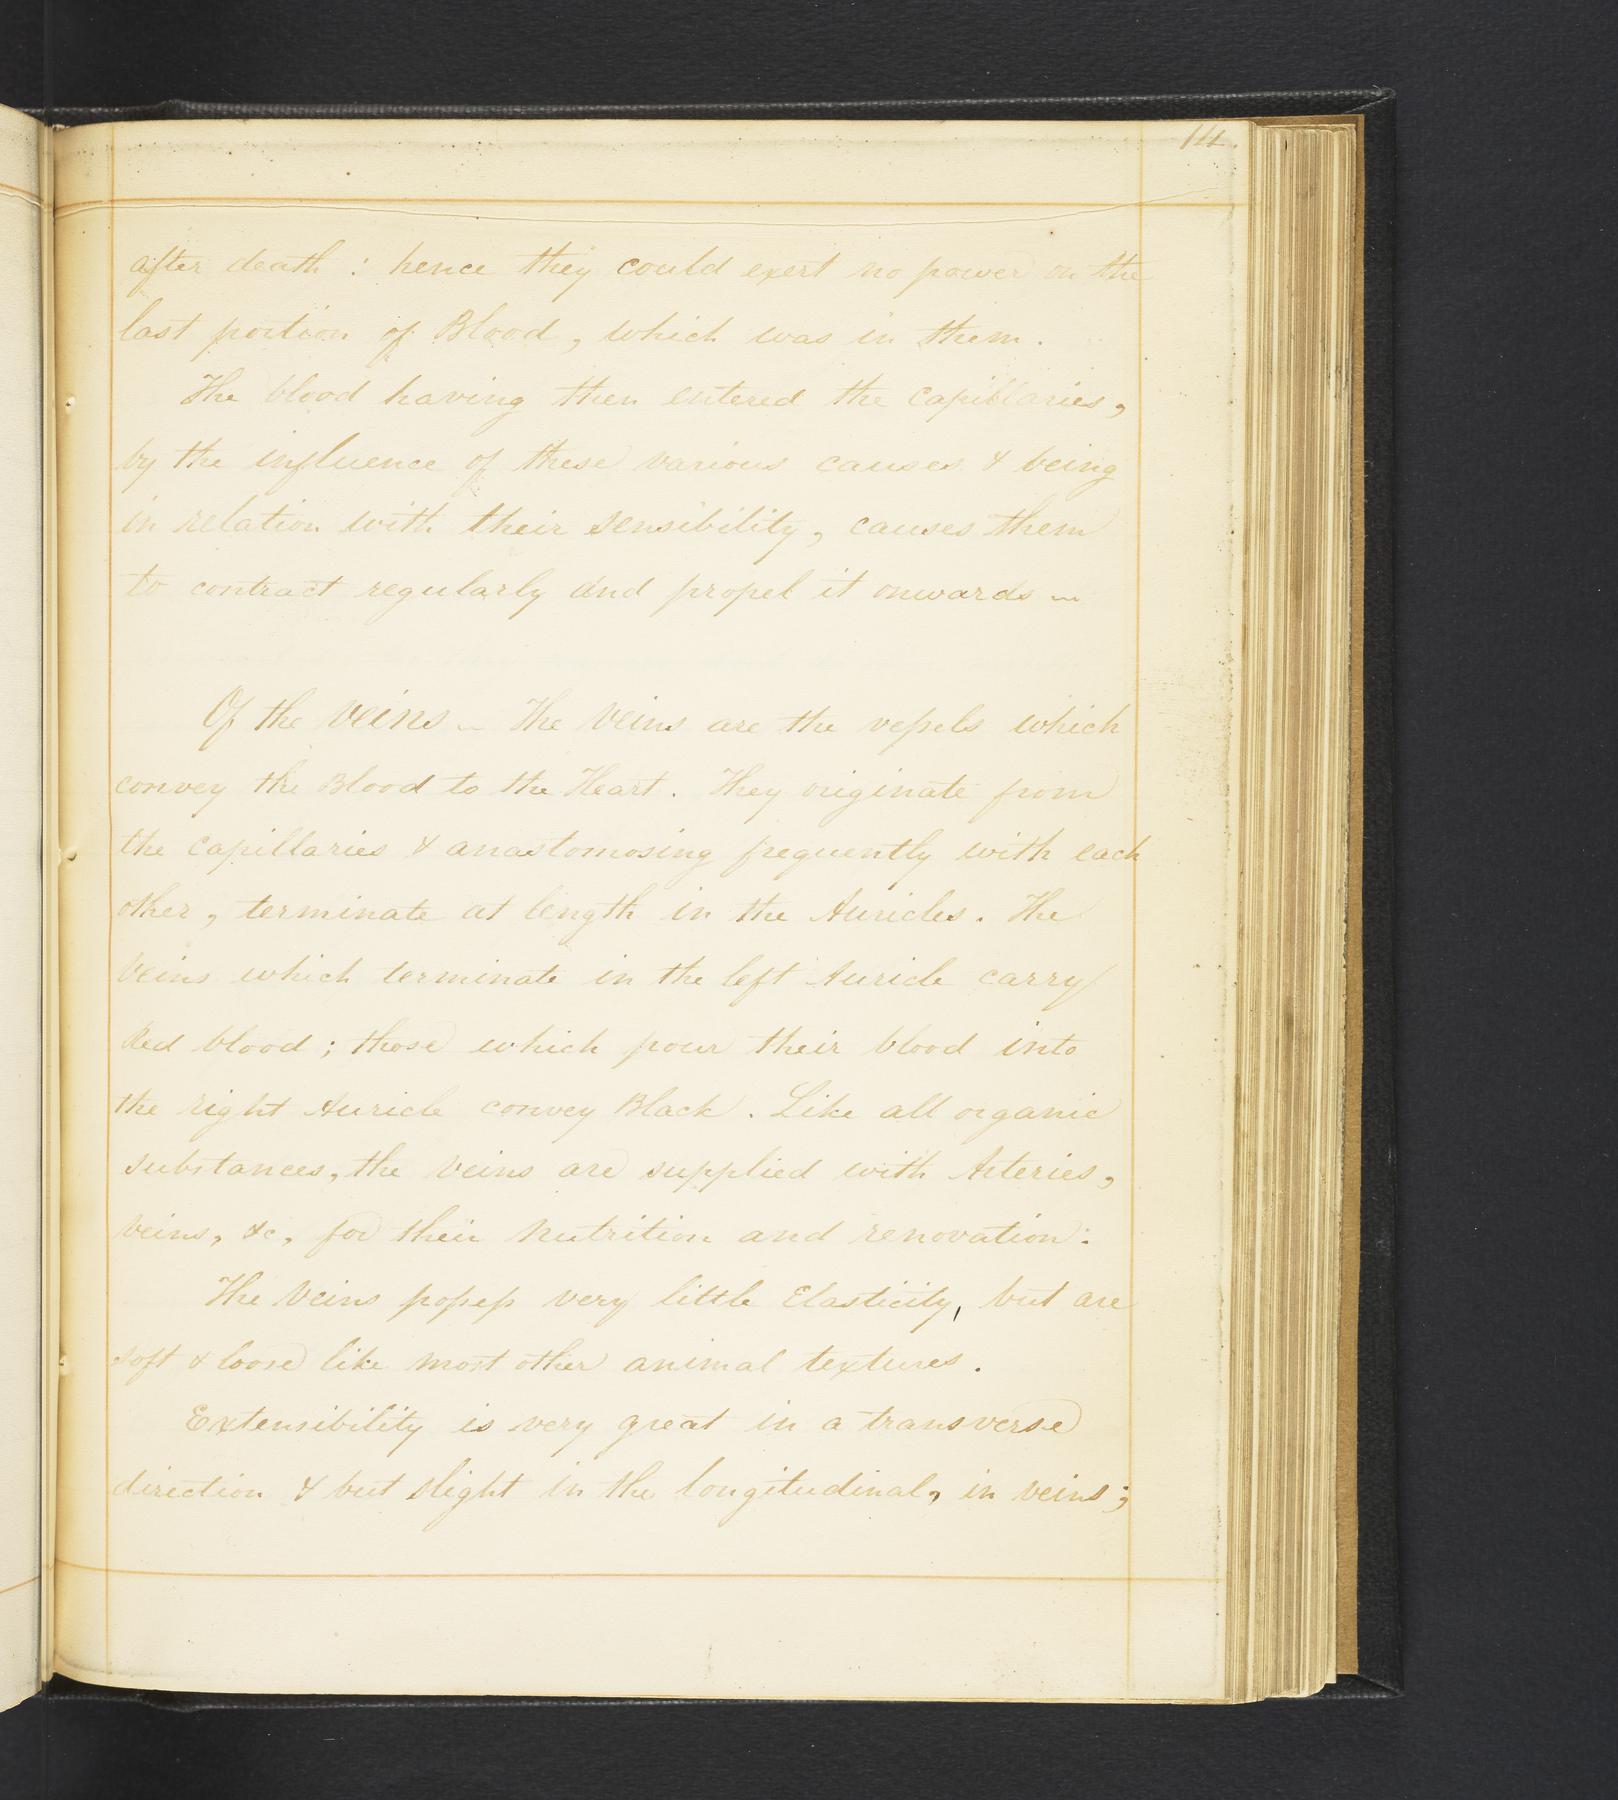 14.
after death : hence they could exert no power on the
last portion of Blood, which was in them.
The blood having then entered the capillaries,
by the influence of these various causes & being
in relation with their sensibility, causes them
to contract regularly and propel it onwards ~
Of the Veins ~ The Veins are the vessels which
convey the Blood to the Heart. They originate from
the capillaries & anastomosing frequently with each
other, terminate at length in the Auricles. The
Veins which terminate in the left Auricle carry
Red blood ; those which pour their blood into
the right Auricle convey Black. Like all organic
substances, the Veins are supplied with Arteries,
Veins, &c, for their Nutrition and renovation :
The Veins possess very little Elasticity, but are
soft & loose like most other animal textures.
Extensibility is very great in a transverse
direction & but slight in the longitudinal, in veins ;